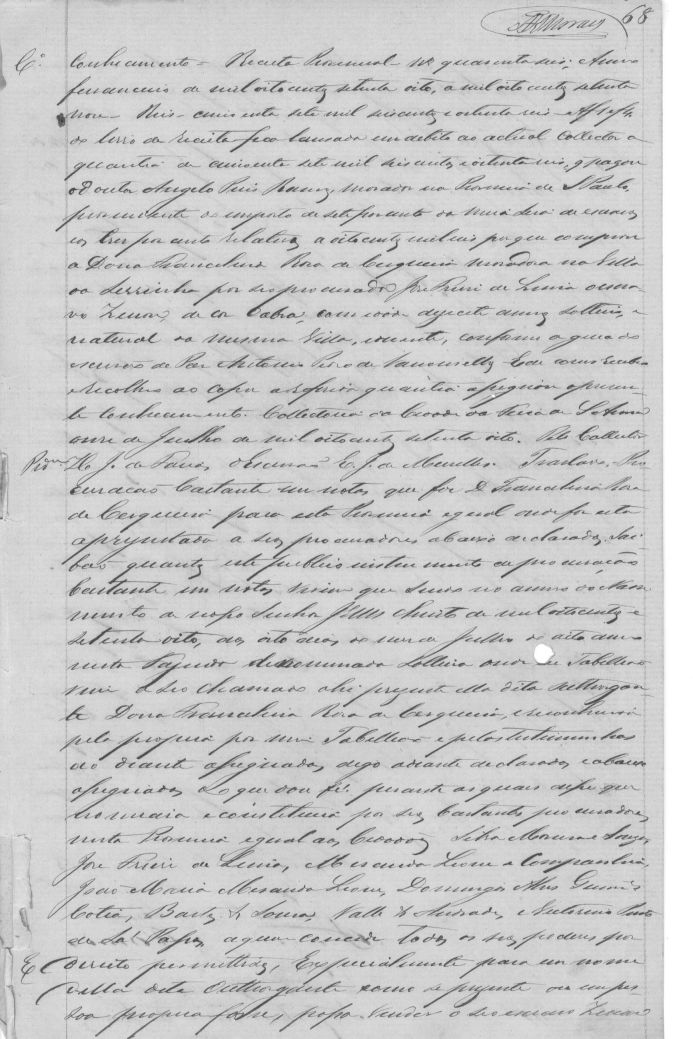 68
C.º Conhecimento - Receita Provincial - Nº quarenta seis, Anno
financeiro de mil oito centos setenta oito, a mil oito centos setenta
nove - Reis - cincoenta sete mil seiscentos e oitenta reis - A f
do livro da receita fica lansada em debito ao actual Collector a
quantia de cincoenta sete mil seiscentos e oitenta reis, q pagou
o Doutor Angelo Pires Ramos, morador na Provincia de S Paulo,
proveniente do imposto de sete por cento da meia sisa de escravos
tres por cento relativos a oito centos mil reis por que comprou
a Dona Francelina Rosa de Cerqueira moradora na Villa
da Serrinha por seo procurador José Freire de Lima o escra-
vo Zenon, de cor Cabra, com idade desecete annos, solteiro, e
natural da mesma Villa, conforme a guia do
escrivão de Paz Antonio Pinto de Vasconsellos. E de como recebeo
e recolheo ao cofre a referida quantia assignou o presen-
te conhecimento. Collectoria da Cidade da Feira de S Anna
onze de Julho de mil oito centos setenta oito. Pelo Collector
J. de Farias, o Escrivão E. J. de Meirelles. Traslado. Pro-
curação bastante em notas que faz D. Francelina Rosa
de Cerqueira para esta Provincia e geral onde for esta
apresentada a seos procuradores abaixo declarados. Sai-
bão quantos este publico instrumento de procuração
bastante em notas virem que sendo no anno do Nasci-
mento de nosso Senhor Jesus Christo de mil oito centos e
setenta oito, aos oito dias do mez de Julho do dito anno
nesta Fazenda denominada onde eu Tabellião
vim a seo chamado ahi presente ella dita outhorgan-
te Dona Francelina Rosa de Cerqueira, reconhecida
pela propria por mim Tabellião e pelas testimunhas
ao diante assignadas, digo adiante declaradas e abaixo
assignadas do que dou fé: perante as quais disse que
nomeia e constituia por seos bastantes procuradores
nesta Provincia e geral aos Cidadãos Silva Moreira e Souza,
José Freire de Lima, Miranda Leone e Companhia,
João Maria Miranda Leone, Domingos Alves Guimarães
Cotia, Bastos & Souza, Valle & Andrade, e
de Sá Passos, a quem concede todos os seos poderes por
direito permittidos, Especialmente para em nome
d'ella dita Outhorgante como se presente ou em pes-
soa propria fosse, possa vender o seo escravo Zenon